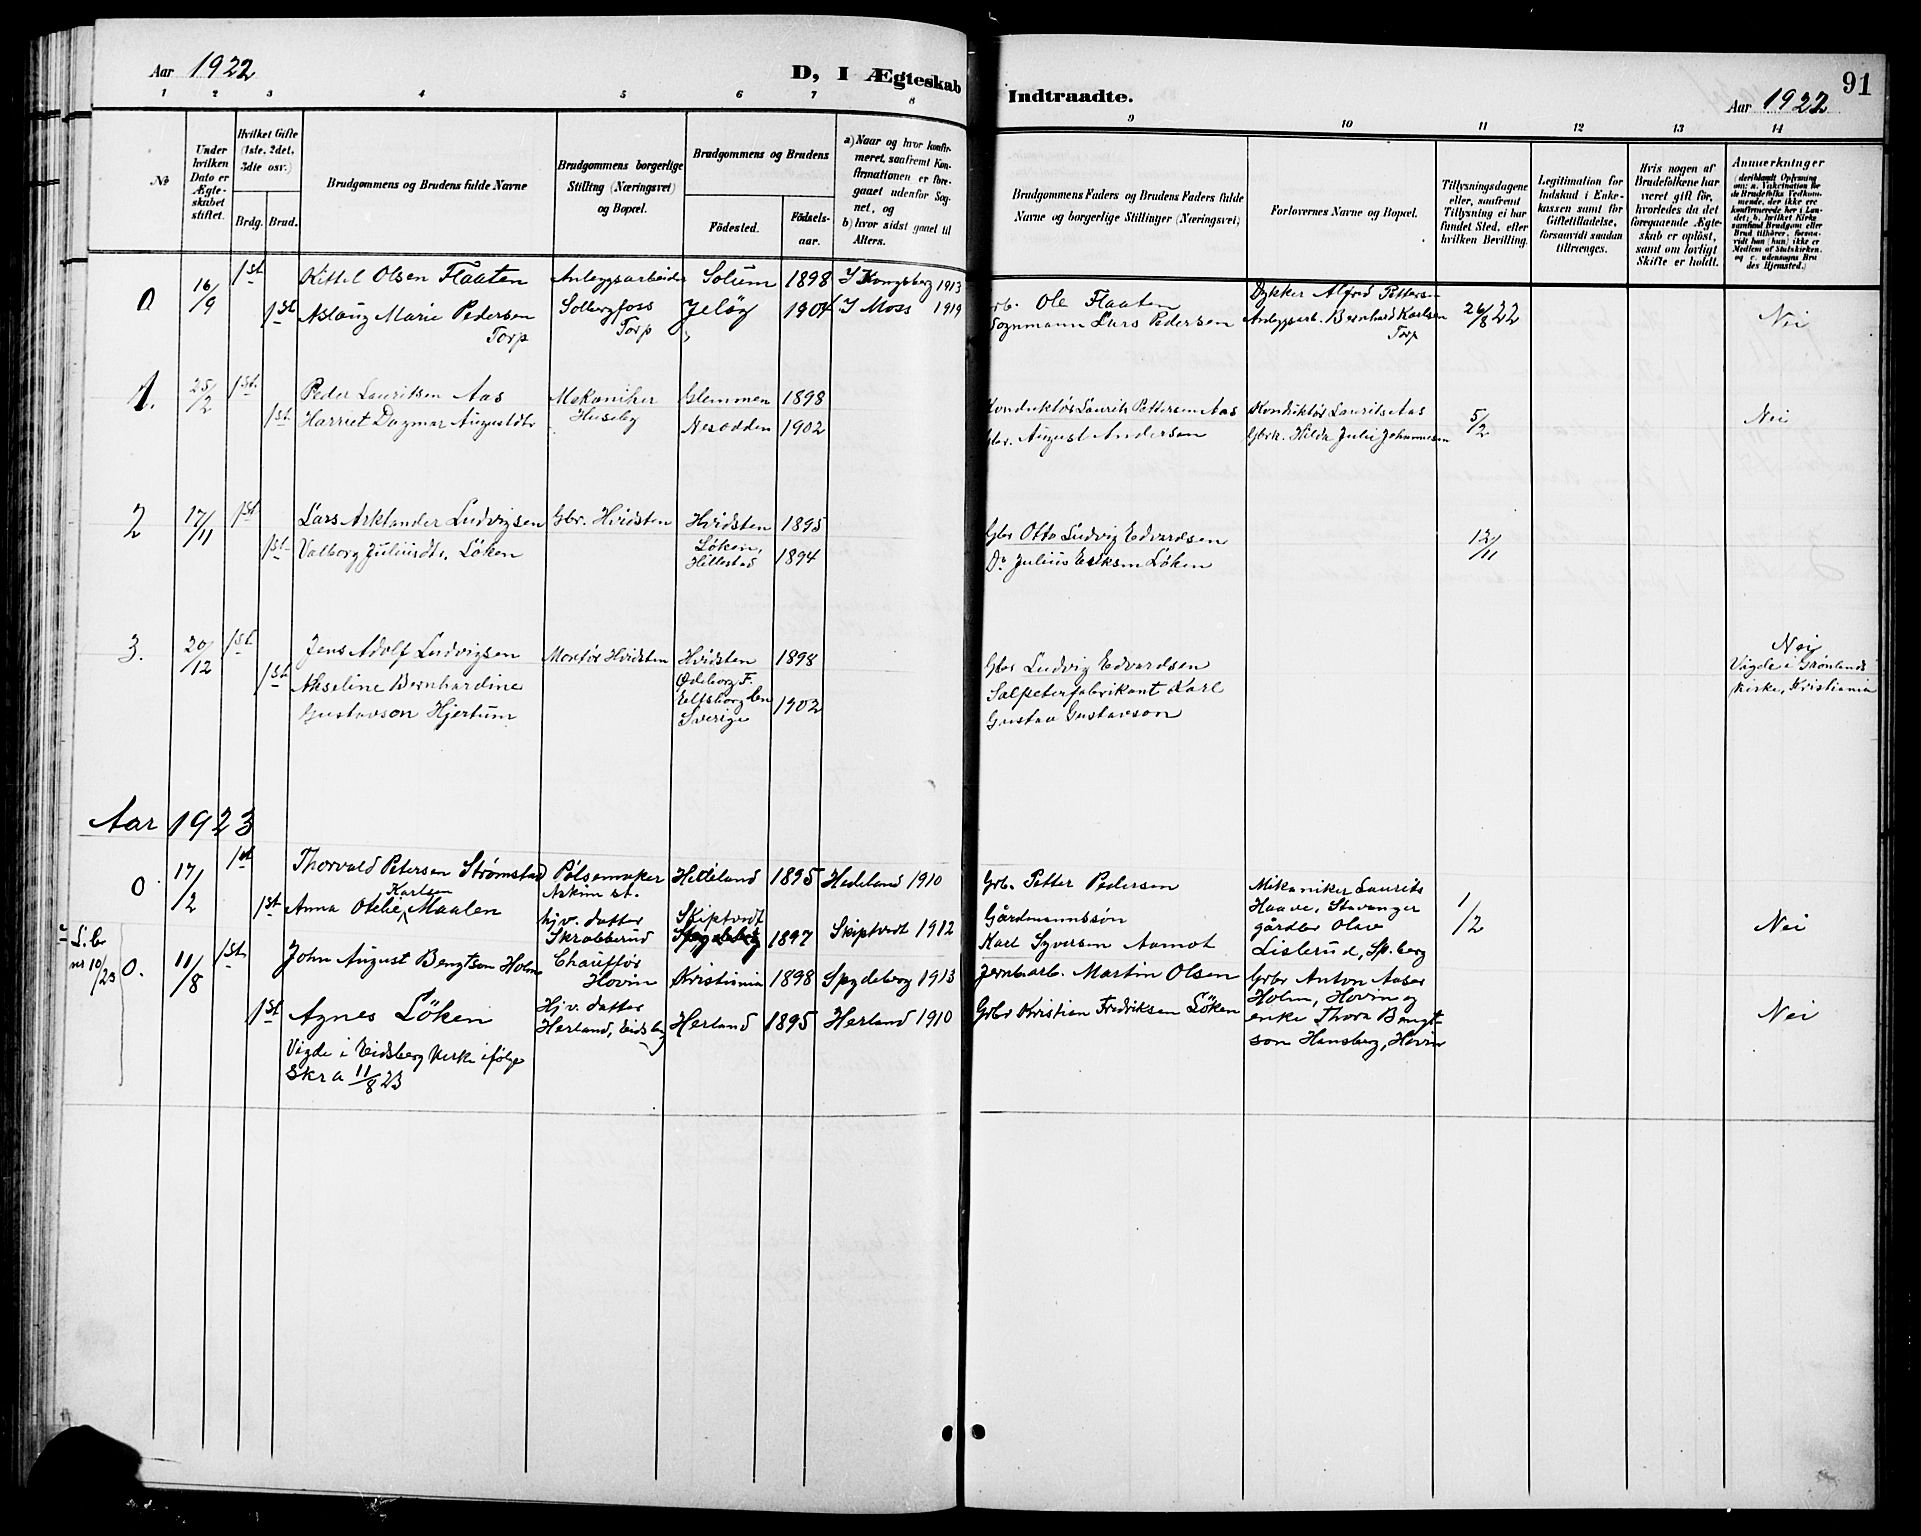 Aar 1922
D, I Ægteskab
Indtraadte.
Aar 1922
91
1 2 3 4 5 6 7 8 9 10 11 12 13 14
No
Under hvilken Dato er Ægteskabet stiftet.
Hvilket Gifte (1ste, 2det, 3die osv.)
Brdg. Brud.
Brudgommens og Brudens fulde Navne
Brudgommens borgerlige Stilling (Næringsvei) og Bopæl.
Brudgommens og Brudens
Födested.
Födsels-aar.
a) Naar og hvor konfirmeret, saafremt Konfirmationen er foregaaet udenfor Sognet, og
b) hvor sidst gaaet til Alters.
Brudgommens Faders og Brudens Faders fulde Navne og borgerlige Stillinger (Næringsvei)
Forlovernes Navne og Bopæl.
Tillysningsdagene eller, saafremt Tillysning ei har fundet Sted, efter hvilken Bevilling.
Legitimation for Indskud i Enkekassen samt for Giftetilladelse, forsaavidt saadan tiltrænges.
Hvis nogen af Brudefolkene har været gift før, hvorledes da det foregaaende Ægteskab er opløst, samt om lovligt Skifte er holdt.
Anmærkninger
0 16/9 1st Kittil Olsen Flaaten Anlegsarbeider Solum 1898 I Kongsberg 1913
1st Aslaug Marie Pedersen Solbergfoss Jeløy 1904 I Moss 1919
Torp Torp
Grb. Ole Flaaten Dykker Alfred Pettersen 26/8 22 Nei
Sognmann Lars Pedersen Anlegsarb. Bernhard Karlsen
Torp
1. 25/2 1st. Peder Lauritsen Aas Mekaniker Glemmen 1898
1st. Harriet Dagmar Augustdtr Huseby Nesodden 1902
Konduktør Laurits Pettersen Aas Konduktør Laurits Aas 5/2 Nei
Gbr. August Andersen Gbrk. Hilda Julie Johannesen
2 17/11 1st Lars Arktander Ludvigsen Gbr. Hvidsten Hvidsten 1895
1st. Valborg Juliusdtr. Löken Löken, Hillestad 1894
Gbr Otto Ludvig Edvardsen 12/11
Do Julius Eriksen Löken
3. 20/12 1st. Jens Adolf Ludvigsen Montør Hvidsten Hvidsten 1898
1st. Akseline Bernhardine Ødeborg F.
Gustavson Hjertum Elfsborg len Sverige 1902
Gbr Ludvig Edvardsen Nei
Salpeterfabrikant Karl Vigde i Grønlands
Gustav Gustavson kirke, Kristiania
Aar 1923
0 17/2 1st Thorvald Petersen Strømstad Pølsemaker Hedeland 1895 Hedeland 1910
Askim st.
1st Anna Otelie Karlsen Maalen hjv. datter Skiptvedt
Skrabberud 1897 Skiptvedt 1912
Grb. Petter Pedersen Mekaniker Laurits 1/2 Nei
Gårdmannssøn Haave, Stavanger
Karl Syversen Aamot gårdbr Olav
Lislerud, Sp.berg
nr 10/23
0. 11/8 1st. John August Bengtson Holm Chauffør Kristiania 1898 Spydeberg 1913
Hovin
1st Agnes Löken Hjv. datter
Herland, Eidsberg Herland 1895 Herland 1910
Vigde i Eidsberg kirke ifølge
Skr a 11/8 23
Jernbarb. Martin Olsen Grbr Anton Aaser
Holm, Hovin og
Grbr Kristian Fredriksen Löken enke Thora Bengt-
son Hansberg, Hovin Nei